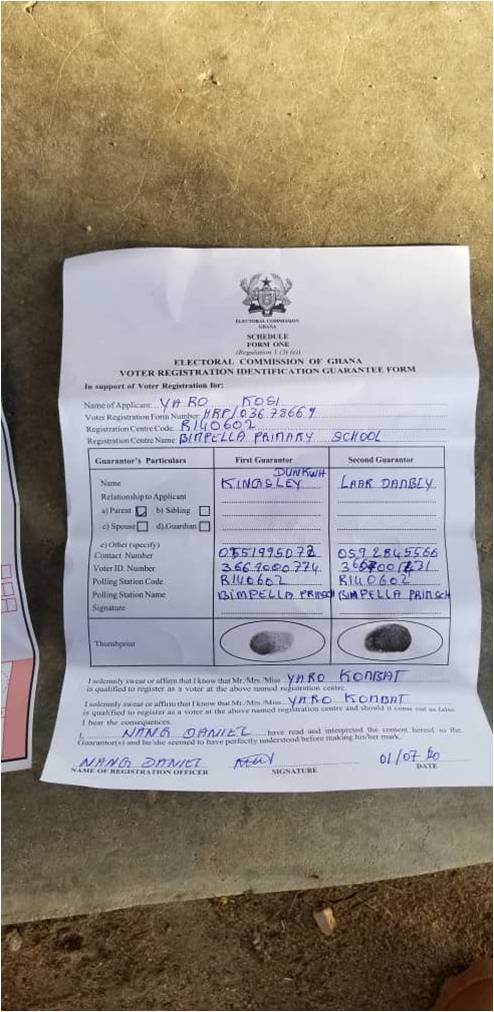 ELECTORAL COMMISSION
GHANA
SCHEDULE
FORM ONE
(Regulation 1 (3) (e))
ELECTORAL COMMISSION OF GHANA
VOTER REGISTRATION IDENTIFICATION GUARANTEE FORM
In support of Voter Registration for:
Name of Applicant: YARO KOSI
Voter Registration Form Number: HRP/036 78669
Registration Centre Code: R140602
Registration Centre Name: BIMPELLA PRIMARY SCHOOL
Guarantor's Particulars First Guarantor Second Guarantor
Name KINGSLEY DUNKWA LAAR DANBEY
Relationship to Applicant
a) Parent b) Sibling
c) Spouse d).Guardian
e) Other (specify)
Contact Number 0592845566
Voter ID. Number 3669000774
Polling Station Code R140602 R140602
Polling Station Name BIMPELLA PRINSCH BIMPELLA PRINSCH
Signature
Thumbprint
I solemnly swear or affirm that I know that Mr./Mrs./Miss YARO KOMBAT
is qualified to register as a voter at the above named registration centre.
I solemnly swear or affirm that I know that Mr./Mrs./Miss YARO KOMBAT
is qualified to register as a voter at the above named registration centre and should it come out as false
I bear the consequences.
I, NANG DANIEL have read and interpreted the content hereof to the
Guarantor(s) and he/she seemed to have perfectly understood before making his/her mark.
NANG DANIEL 01/07/20
NAME OF REGISTRATION OFFICER SIGNATURE DATE